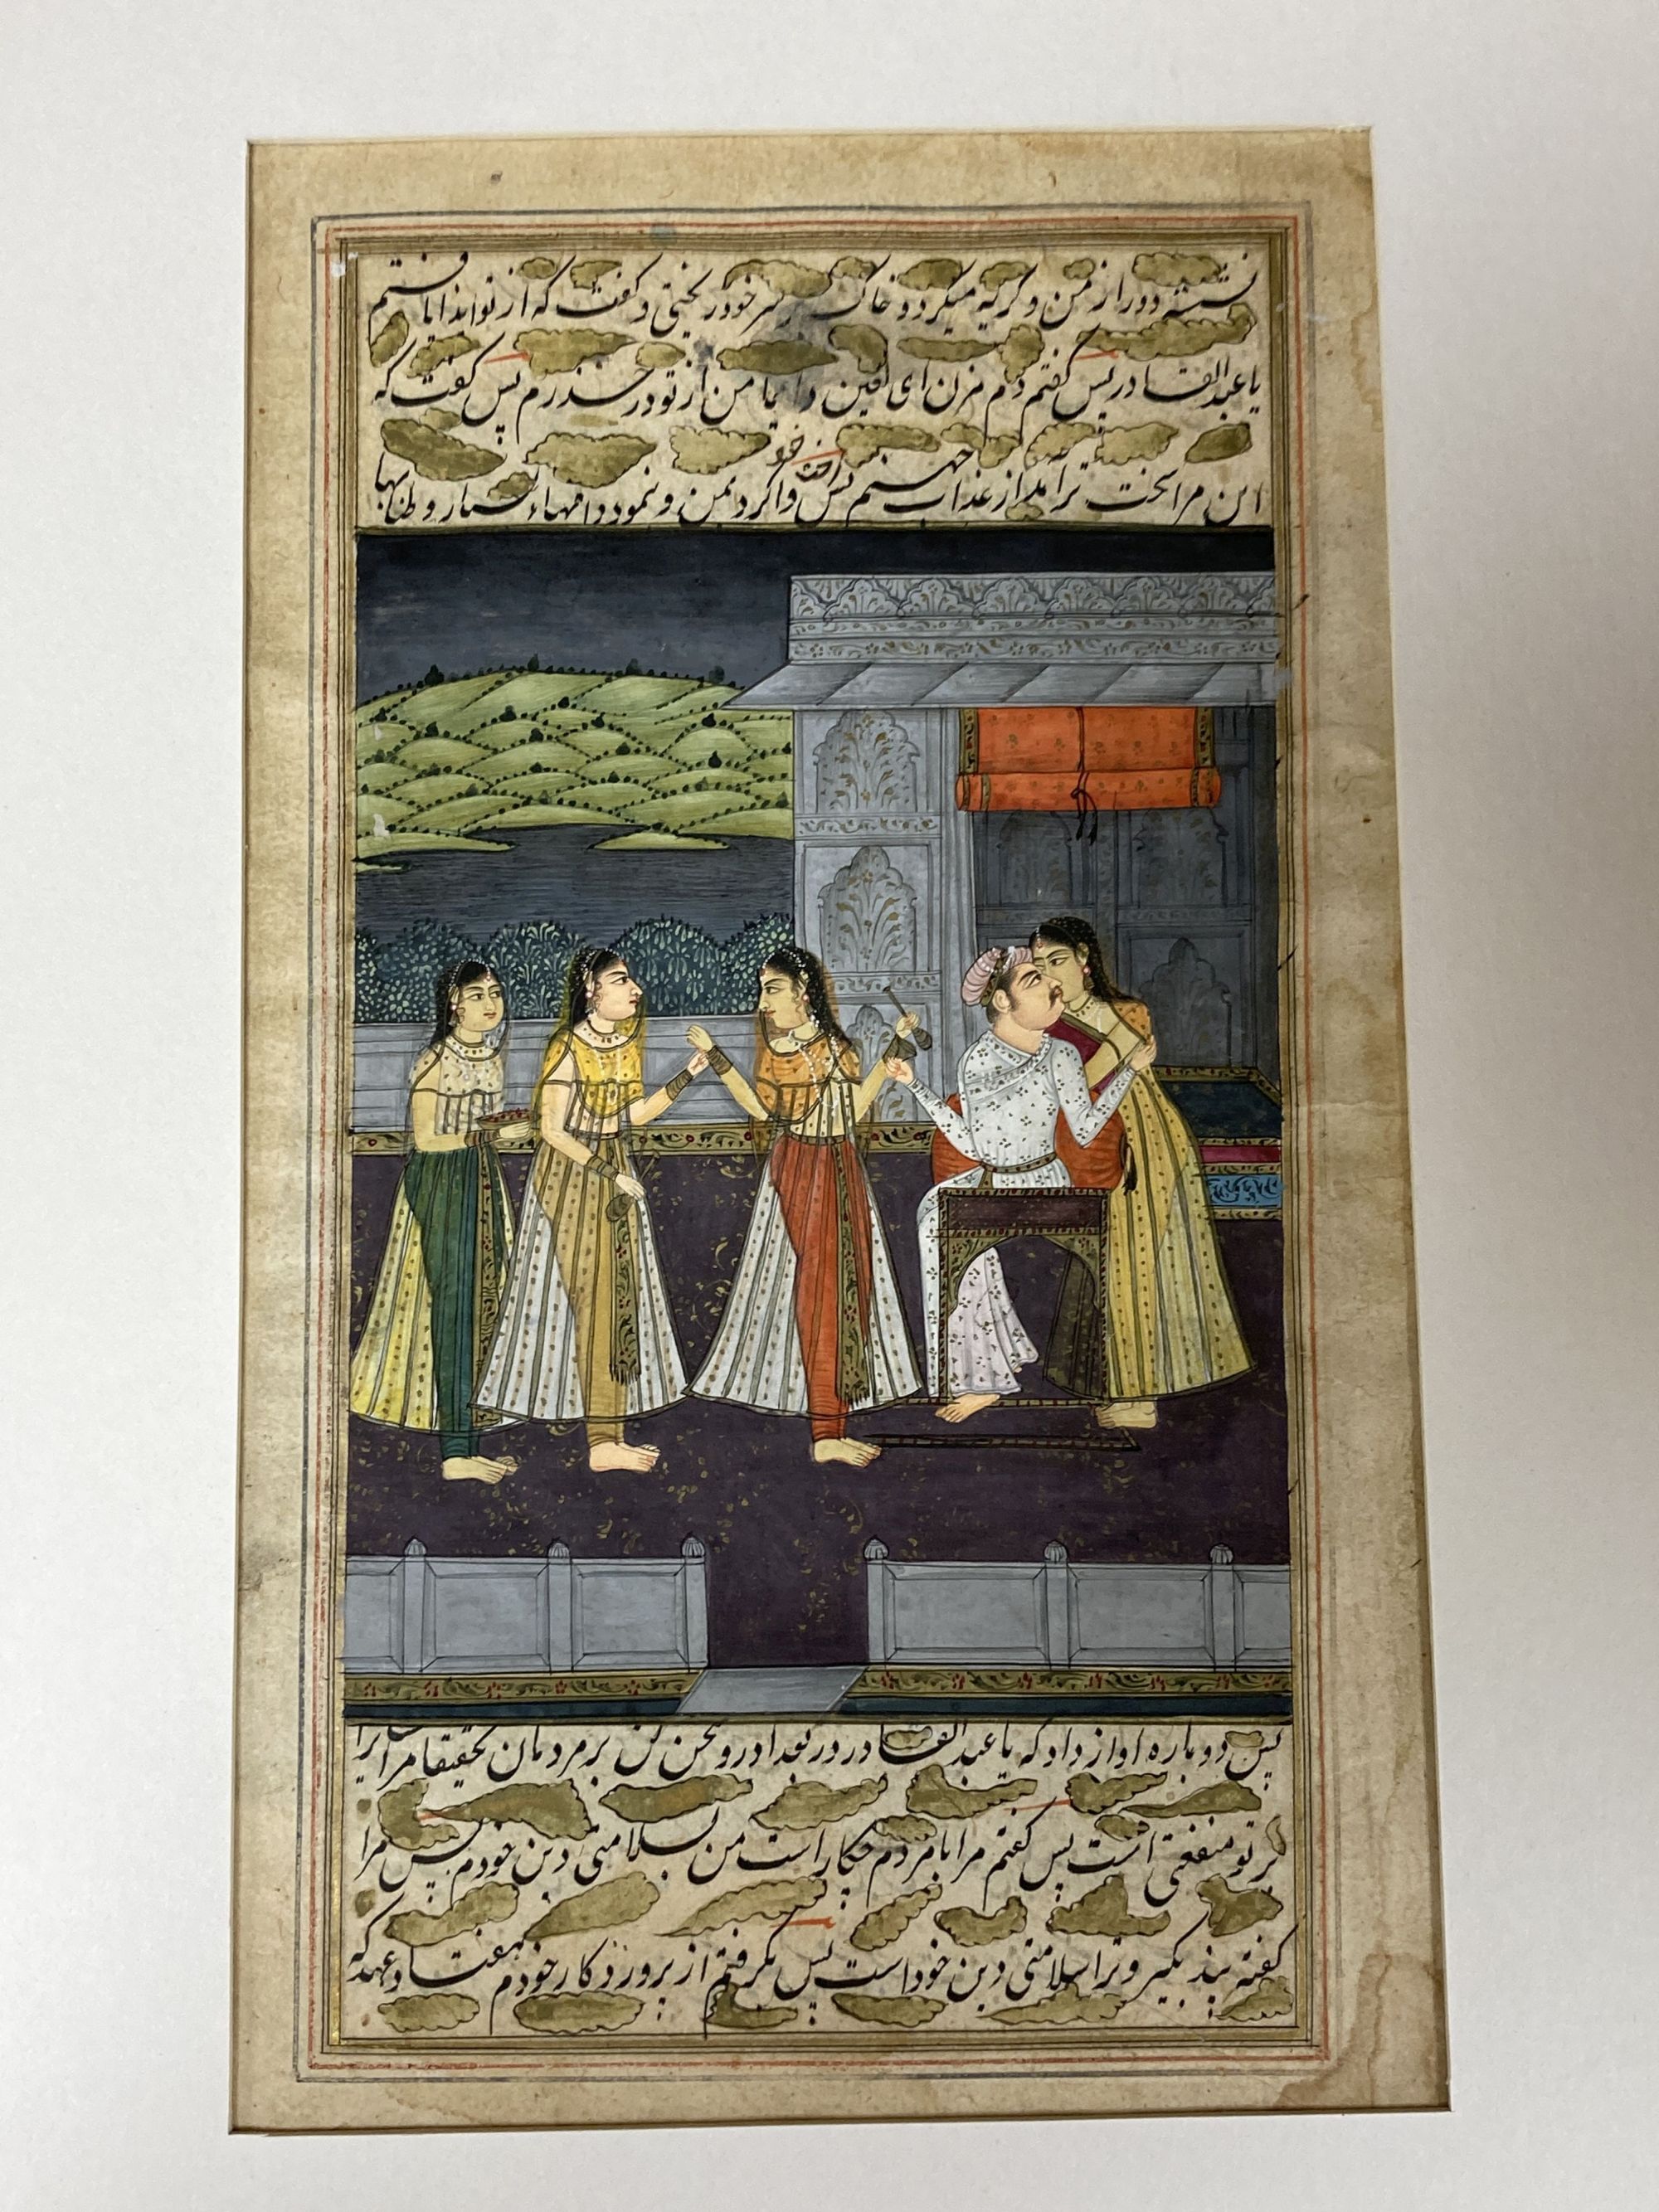 نشسته دور از من و گریه میکرد و خاک بر سر خود ریختی و گفت که از تو اندا یافتم
یا عبدالقادر پس گفتم دم مزن ای لعین دایما من از تو در حذرم پس گفت که
این مرا سخت تر آمد از عذاب جهنم پس واکرد بمن و نمود دامهاء بسیار و طنابها
پس دوباره اواز داد که یا عبدالقادر در بغداد رو سخن کن بر مردمان تحقیقا مر ایشانرا
بر تو منفعتی است پس گفتم مرا با مردم چکار است من بسلامتی دین خودم پس مرا
گفته بپذیر و ترا سلامتی دین خود است پس بگرفتم از پروردگار خودم هفتاد عهد که